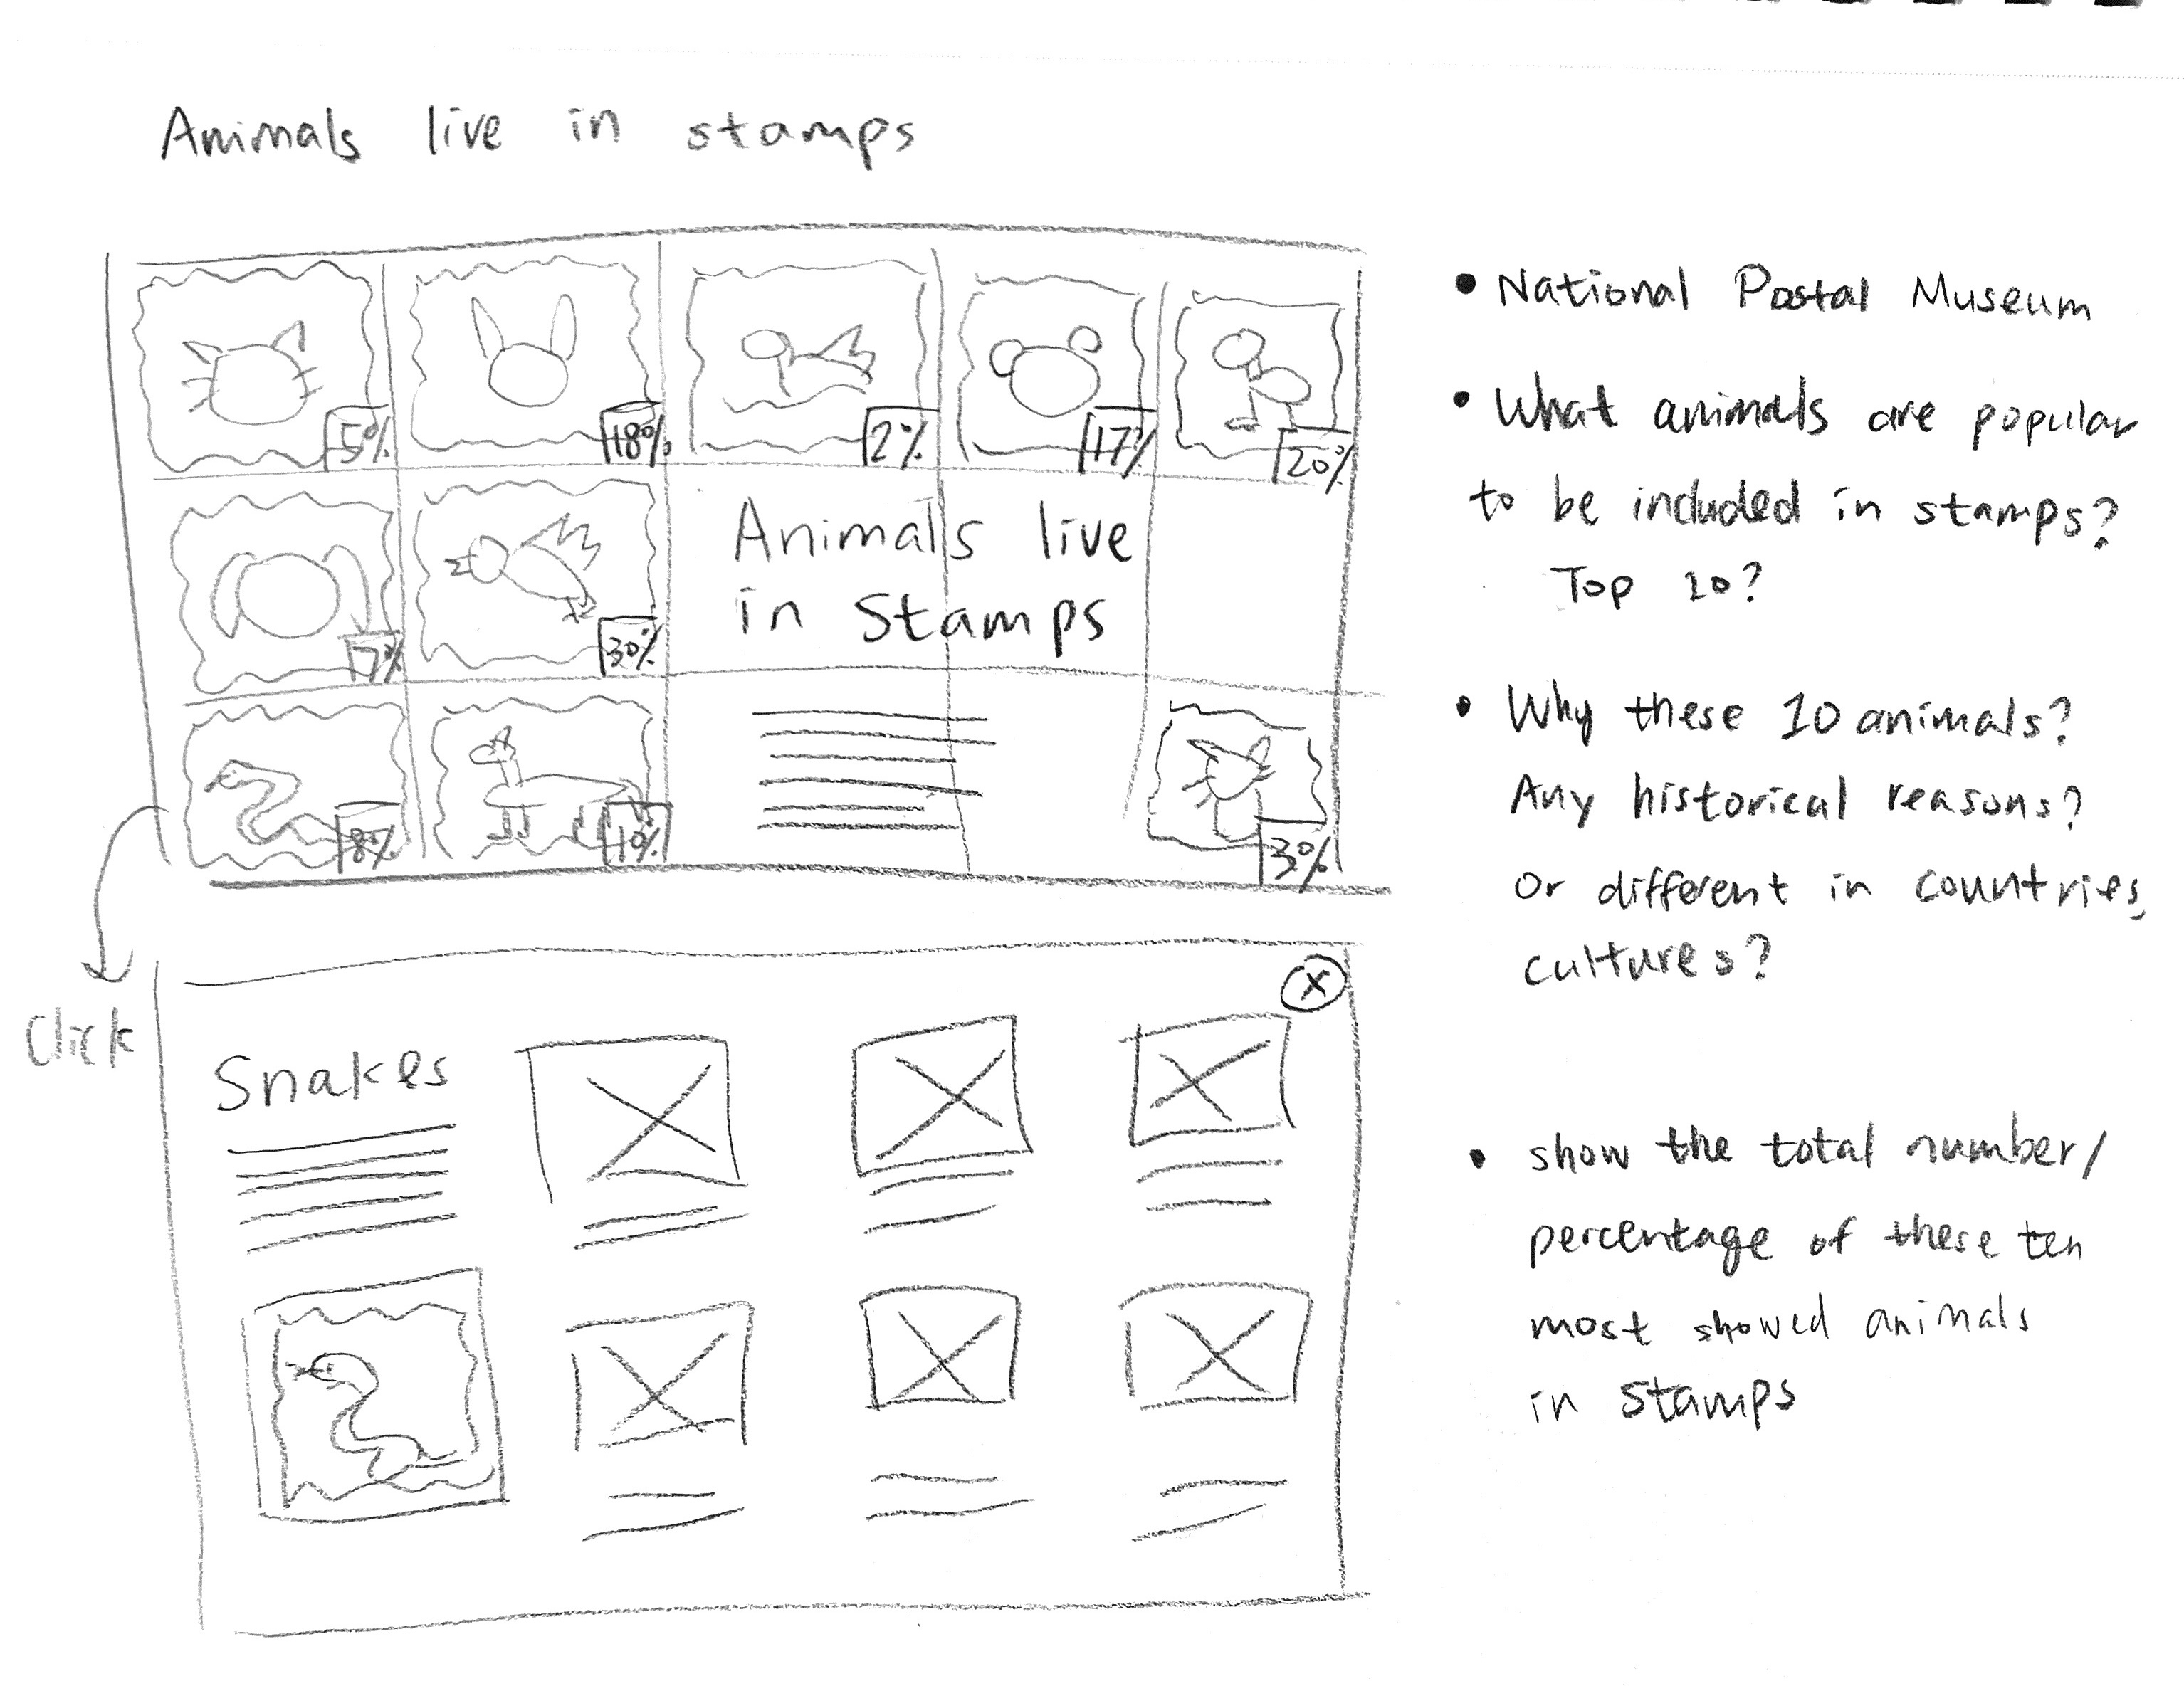 Animals live in stamps
5%
18%
2%
17%
20%
7%
30%
Animals live
in Stamps
8%
10%
3%
Click
Snakes
X
• National Postal Museum
• What animals are popular
to be included in stamps?
Top 10?
• Why these 10 animals?
Any historical reasons?
Or different in countries,
cultures?
• show the total number/
percentage of these ten
most showed animals
in stamps